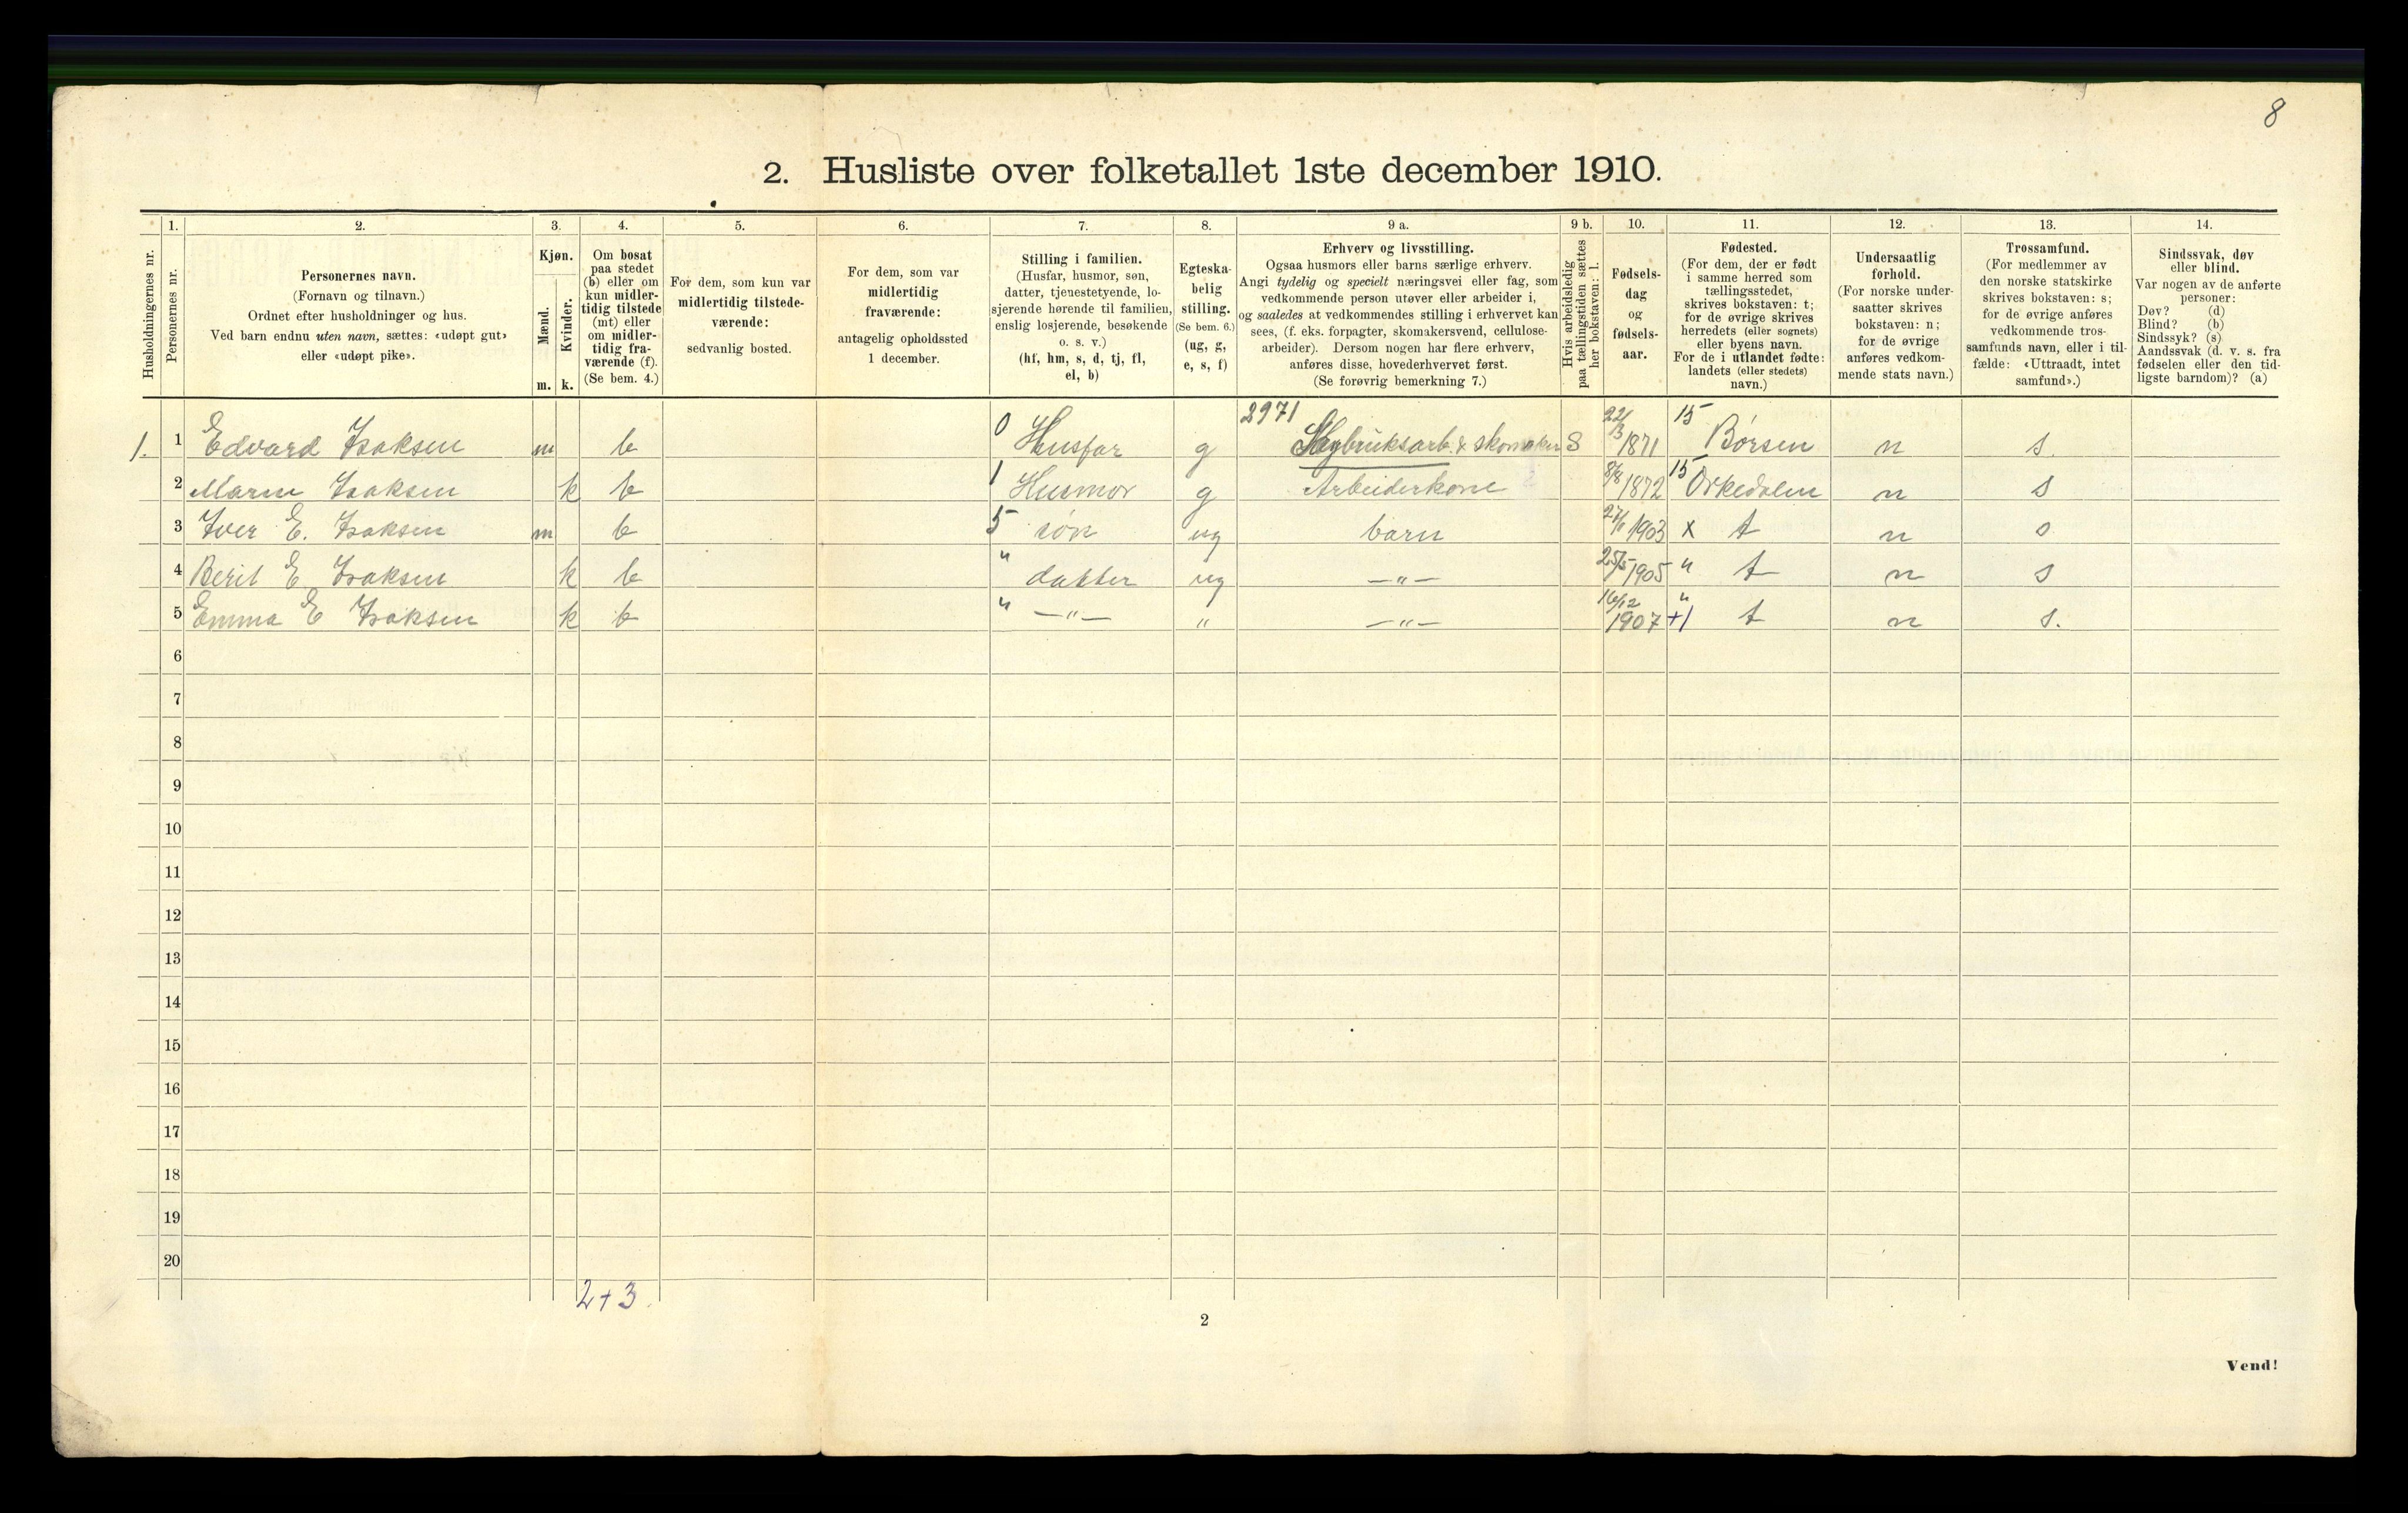 8
2. Husliste over folketallet 1ste december 1910.
Husholdningernes nr.
1. Personernes nr.
2. Personernes navn.
(Fornavn og tilnavn.)
Ordnet efter husholdninger og hus.
Ved barn endnu uten navn, sættes: «udøpt gut»
eller «udøpt pike».
3. Kjøn.
Mænd. m.
Kvinder. k.
4. Om bosat
paa stedet
(b) eller om
kun midler-
tidig tilstede
(mt) eller
om midler-
tidig fra-
værende (f).
(Se bem. 4.)
5. For dem, som kun var
midlertidig tilstede-
værende:
sedvanlig bosted.
6. For dem, som var
midlertidig
fraværende:
antagelig opholdssted
1 december.
7. Stilling i familien.
(Husfar, husmor, søn,
datter, tjenestetyende, lo-
sjerende hørende til familien,
enslig losjerende, besøkende
o. s. v.)
(hf, hm, s, d, tj, fl,
el, b)
8. Egteska-
belig
stilling.
(Se bem. 6.)
(ug, g,
e, s, f)
9 a. Erhverv og livsstilling.
Ogsaa husmors eller barns særlige erhverv.
Angi tydelig og specielt næringsvei eller fag, som
vedkommende person utøver eller arbeider i,
og saaledes at vedkommendes stilling i erhvervet kan
sees, (f. eks. forpagter, skomakersvend, cellulose-
arbeider). Dersom nogen har flere erhverv,
anføres disse, hovederhvervet først.
(Se forøvrig bemerkning 7.)
9 b. Hvis arbeidsledig
paa tællingstiden sættes
her bokstaven: l.
10. Fødsels-
dag
og
fødsels-
aar.
11. Fødested.
(For dem, der er født
i samme herred som
tællingsstedet,
skrives bokstaven: t;
for de øvrige skrives
herredets (eller sognets)
eller byens navn.
For de i utlandet fødte:
landets (eller stedets)
navn.)
12. Undersaatlig
forhold.
(For norske under-
saatter skrives
bokstaven: n;
for de øvrige
anføres vedkom-
mende stats navn.)
13. Trossamfund.
(For medlemmer av
den norske statskirke
skrives bokstaven: s;
for de øvrige anføres
vedkommende tros-
samfunds navn, eller i til-
fælde: «Uttraadt, intet
samfund».)
14. Sindssvak, døv
eller blind.
Var nogen av de anførte
personer:
Døv? (d)
Blind? (b)
Sindssyk? (s)
Aandssvak (d. v. s. fra
fødselen eller den tid-
ligste barndom)? (a)
1. 1 Edvard Isaksen m b 0 Husfar g 2971 Sagbruksarb. & skomaker S 22/3 1871 15 Børsen n s.
2 Maren Isaksen k b 1 Husmor g Arbeiderkone 8/8 1872 15 Orkedalen n s
3 Iver E. Isaksen m b 5 søn ug barn 1903 x t n s
4 Berit E. Isaksen k b " datter ug —"— 25/5 1905 " t n s
5 Emma E Isaksen k b " —"— " —"— 16/12 1907 " +1 t n s.
6
7
8
9
10
11
12
13
14
15
16
17
18
19
20
2+3.
2
Vend!